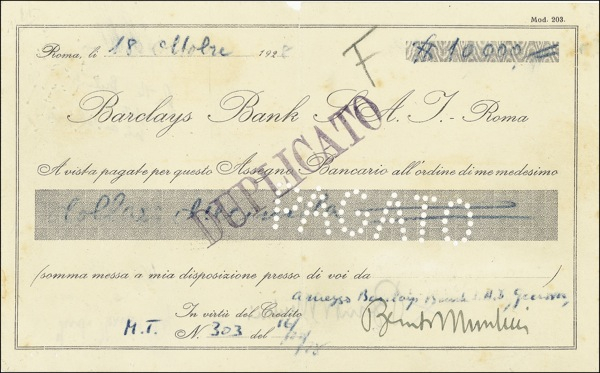 Mod. 203.
Roma, li 18 Ottobre 1928
F
# 10000,=
Barclays Bank S.A.I. - Roma
DUPLICATO
A vista pagate per questo Assegno Bancario all'ordine di me medesimo
Dollari diecimila
PAGATO
(somma messa a mia disposizione presso di voi da
a mezzo Barclays Bank S.A.I., Genova)
In virtù del Credito
M.T. N. 303 del
Benito Mussolini